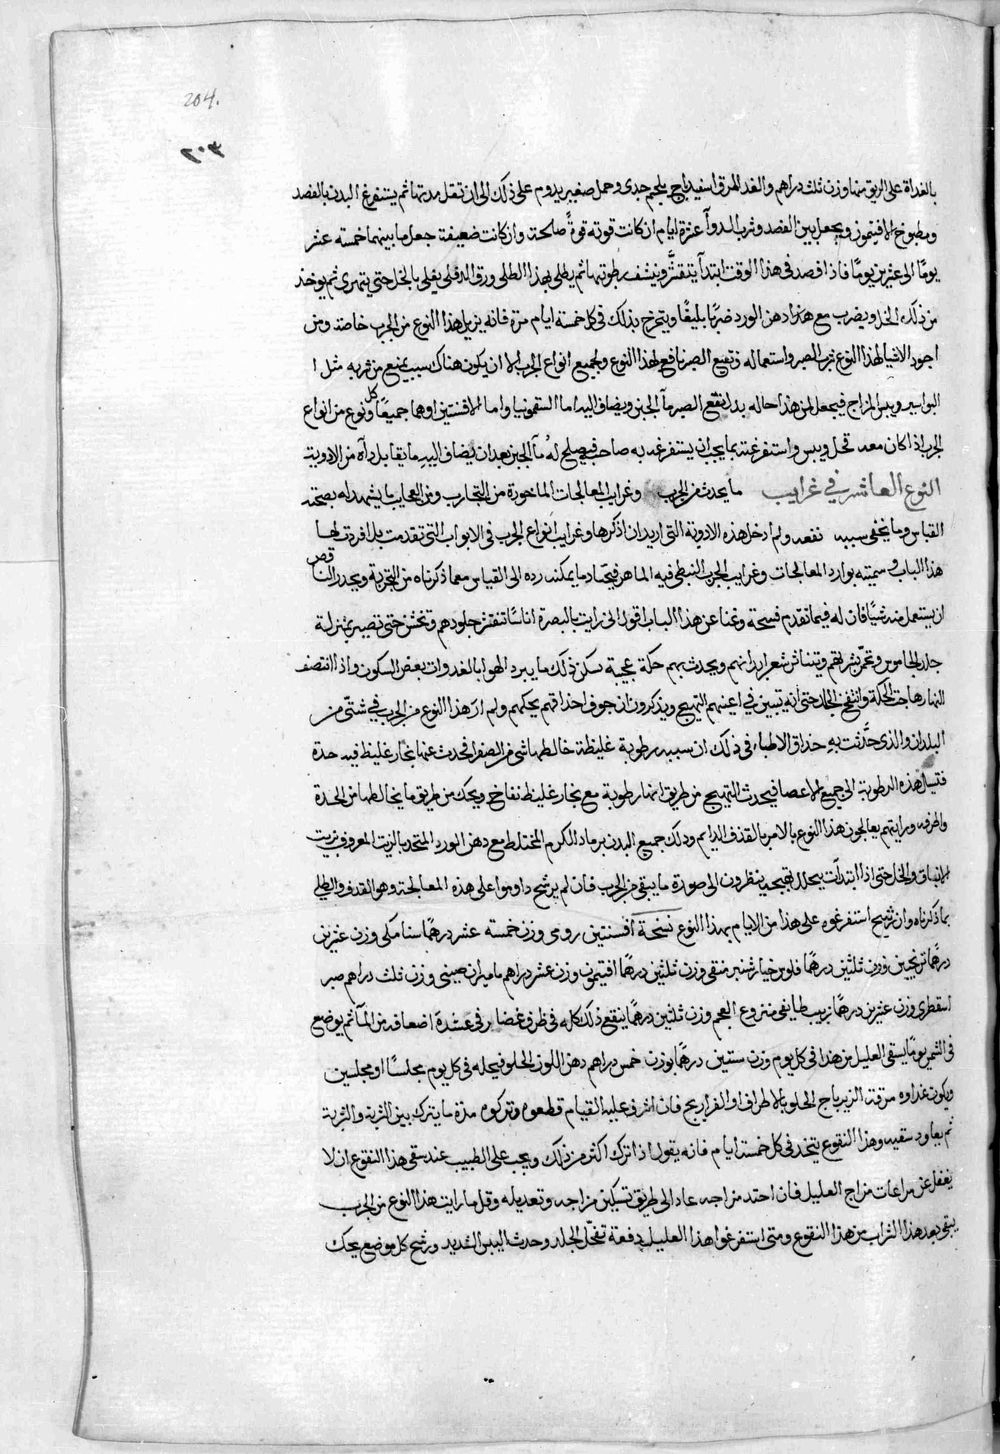 204.
٢٠٣
بالغداة على الريق منها وزن ثلث دراهم والغد المرق اسفيدباج بلحم جدى وحمل صغير يدوم على ذلك الى ان تقل مدتها ثم يستفرغ البدن بالفصد
ومطبوخ الافتيمون ويجعل بين الفصد وشرب الدوآ عشرة ايام ان كانت قوته قوةً صالحة وان كانت ضعيفة جعل ما بينهما خمسته عشر
يومًا الى عشرين يومًا فاذا فصد فى هذا الوقت ابتدأ يتقشر وينشف رطوبتها ثم يطلى بهذا الطلى ورق الدفلى يغلى بالخل حتى يتهرى ثم يوخذ
من ذلك الخل ويضرب مع هذا دهن الورد ضربًا بليغًا ويتمرخ بذلك فى كل خمسة ايام مرة فانه يزيل هذا النوع من الجرب خاصة ومن
اجود الاشيا لهذا النوع شرب الصبر واستعماله ونقيع الصبر نافع لهذا النوع ولجميع انواع الجرب الا ان يكون هناك سبب يمنع من شربه مثل ا
البواسير ويبس المزاج فيجعل لمن هذا حاله بدل نقع الصبر مآ الجبن ويضاف اليه اما السقمونيا واما الافسنتين او هما جميعًا وكل نوع من انواع
الجرب اذا كان معه قحل ويبس واستفرغته بما يجب ان يستفرغ به صاحبه فيصلح له مآ الجبن بعد ان يضاف اليه ما يقابل دآه من الادوية
النوع العاشر فى غرايب ما يحدث من الجرب وغرايب المعالجات الماخوذة من التجارب ومن العجايب ما يشهد له بصحته
القياس وما يخفى سببه نفعه ولم ادخل هذه الادوية التى اريد ان اذكرها وغرايب انواع الجرب فى الابواب التى تقدمت بل افردت لها
هذا الباب وسميته بوارد المعالجات وغرايب الجرب النبطى فيه الماهر فيجد ما يمكنه رده الى القياس مما ذكرناه من التجربة ويحذر الناقص
ان يستعمل منه شيًا فان له فيما تقدم فسحة وغنا عن هذا الباب اقول انى رايت بالبصرة اناسًا تتقشر جلودهم وتخشن حتى تصير بمنزلة
جلد الجاموس وتحمر بشرتهم ويتناثر شعر ابدانهم ويحدث بهم حكة عجيبة سكن ذلك ما يبرد الهوا بالغدوات بعض السكون واذا انتصف
النهار هاجت الحكة وانتفخ الجلد حتى انه يتبين فى اعينهم التهيج ويذكرون ان جوف احداقهم يحكهم ولم ار هذا النوع من الجرب فى شتى من
البلدان والذى حدثت به حذاق الاطباء فى ذلك ان سببه رطوبة غليظة خالطها شى من الصفرا فحدث عنها بخار غليظ فيه حدة
فتسيل هذه الرطوبة الى جميع الاعضا فيحدث التهيج من طريق انها رطوبة مع بخار غليظ نفاخ ويحك من طريق ما يخالطها من الحدة
والحرافه ورايتهم يعالجون هذا النوع بالامر بالقذف الدايم ودلك جميع البدن برماد الكرم المختلط مع دهن الورد المتخذ بالزيت المعروف بزيت
الانفاق والخل حتى اذا ابتدأت يتحلل تهيجه ينظرون الى صورة ما يبقى من الجرب فان لم يرشح داوموا على هذه المعالجة وهو القذف والطلى
بما ذكرناه وان ترشح استفرغوه على هذا من الايام بهذا النوع نسخة افسنتين رومى وزن خمسة عشر درهمًا سنا مكى وزن عشرين
درهمًا ترنجبين وزن ثلثين درهما فلوس خيار شنبر منقى وزن ثلثين درهمًا افتيمون وزن عشر دراهم ماميران صينى وزن ثلث دراهم صبر
اسقطرى وزن عشرين درهمًا زبيب طايفى منزوع العجم وزن ثلثين درهمًا ينقع ذلك كله فى ظرف غضار فى عشرة اضعافه من المآ ثم يوضع
فى الشمس يومًا يسقى العليل من هذا فى كل يوم وزن ستين درهمًا بوزن خمس دراهم دهن اللوز الحلو فيحله فى كل يوم مجلسًا او مجلسين
ويكون غداوه مرقة الزيرباج الحلو بالاطراف او الفراريج فان اشرف عليه القيام قطعوه وتركوه مدة ما يترك بين الشربة والشربة
ثم يعاود سقيه وهذا النقوع يتخذ فى كل خمسة ايام فانه يقول اذا ترك اكثر من ذلك ويجب على الطبيب عند سقى هذا النقوع ان لا
يغفل عن مراعات مزاج العليل فان احتد مزاجه عاد الى طريق تسكين مزاجه وتعديله وقل ما رايت هذا النوع من الجرب
يبقى بعد هذا الشراب من هذا النقوع ومتى استفرغوا هذا العليل دفعة تقحّل الجلد وحدث اليبس الشديد ورشح كل موضع يحك